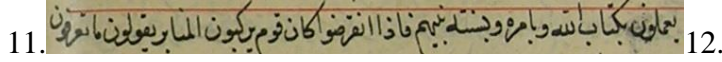 11. يعملون بكتاب الله وبامره وبسنته نبيهم فاذا انقرضوا كان قوم يركبون المنابر يقولون ما تعرفون 12.